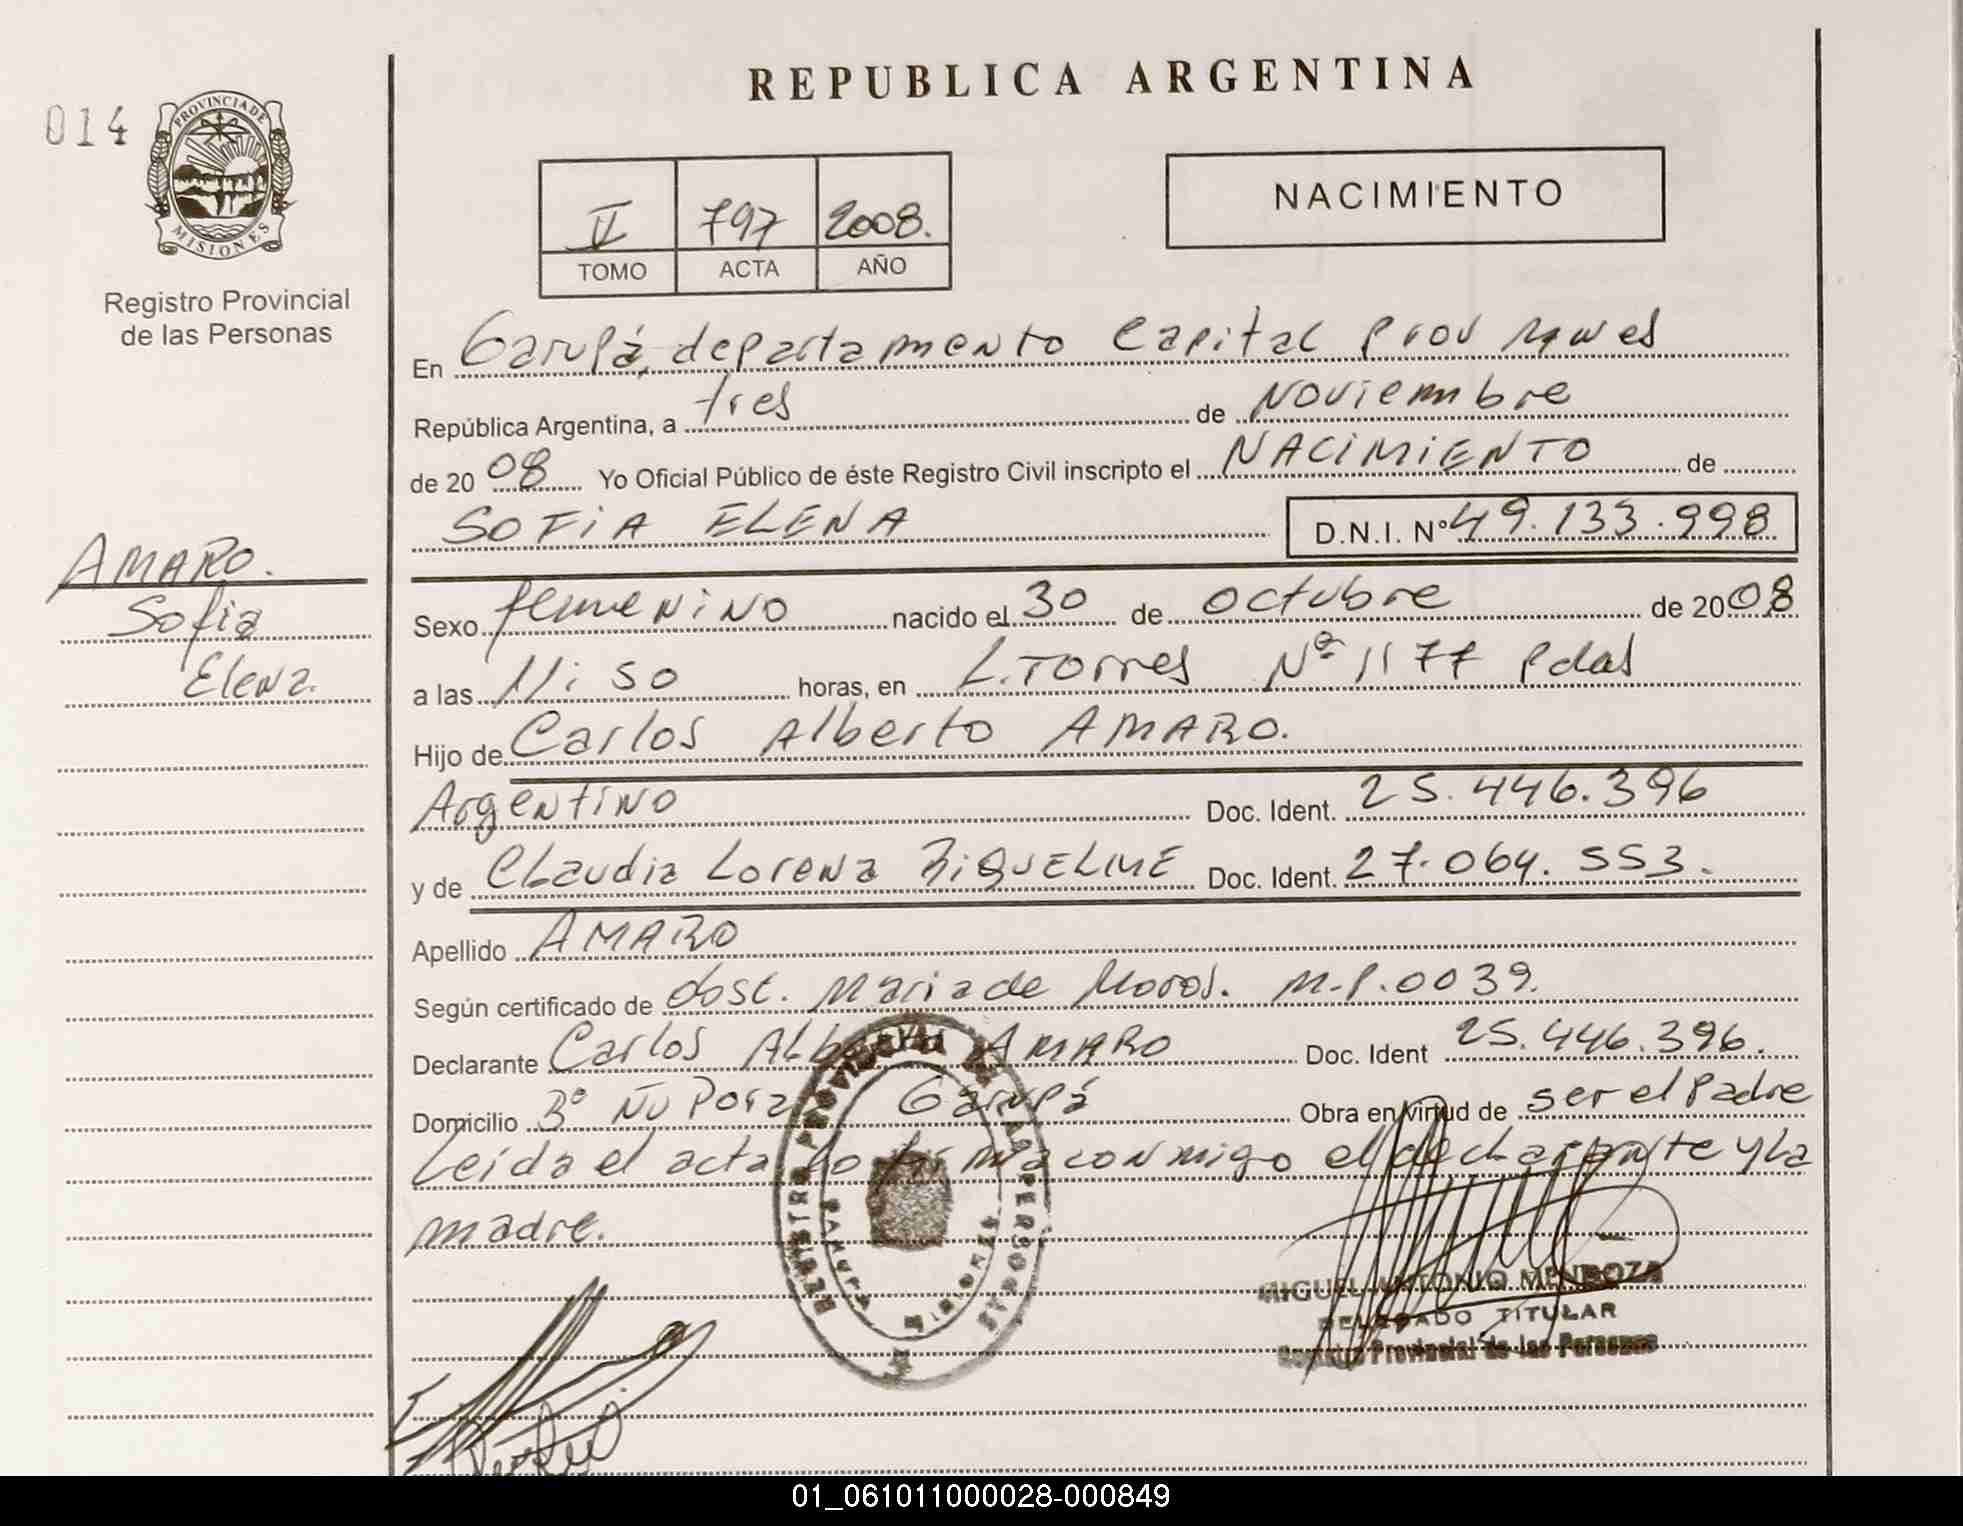 REPUBLICA ARGENTINA
014
PROVINCIA DE
MISIONES
Registro Provincial
de las Personas
NACIMIENTO
II 797 2008.
TOMO ACTA AÑO
En Garupá, departamento Capital Prov
República Argentina, a tres de Noviembre
de 2008 Yo Oficial Público de éste Registro Civil inscripto el NACIMIENTO de
SOFIA ELENA D.N.I. Nº 49.133.998
AMARO.
Sofia
Elena.
Sexo femenino nacido el 30 de octubre de 2008
a las 11:50 horas, en L. Torres Nº 1177 Pdas
Hijo de Carlos Alberto AMARO.
Argentino Doc. Ident. 25.446.396
y de Claudia Lorena RIQUELME Doc. Ident. 27.064.553.
Apellido AMARO
Según certificado de obst. Maria de M.P.0039.
Declarante Carlos Alberto AMARO Doc. Ident 25.446.396.
Domicilio Bº Ñu Pora Garupá Obra en virtud de ser el Padre
Leida el acta lo firma conmigo el declarante y la
madre.
REGISTRO PROVINCIAL DE LAS PERSONAS
MISIONES
MIGUEL ANTONIO MENDOZA
DELEGADO TITULAR
Registro Provincial de las Personas
01_061011000028-000849